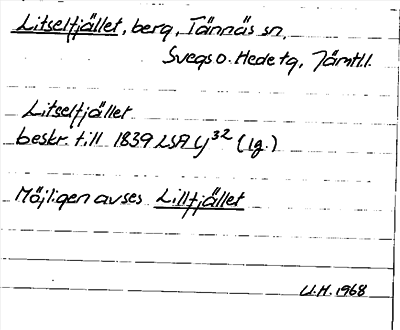 Litselfjället, berg, Tännäs sn,
Svegs o. Hede tg, Jämtl.l.
Litselfjället
beskr. till 1839 LSA y³² (lg.)
Möjligen avses Lillfjället
U.H. 1968